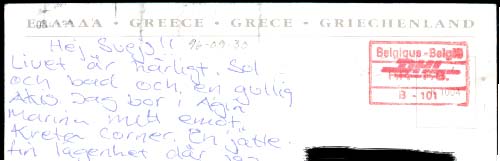 ΕΛΛΑΔΑ • GREECE • GRECE • GRIECHENLAND
Hej Svejs!! 96-09-30
Livet är härligt. Sol
och bad och en gullig
Jag bor i Agia
Marina mitt emot
Kreta Corner. En jätte-
fin lägenhet där
Belgique - België
B - 101